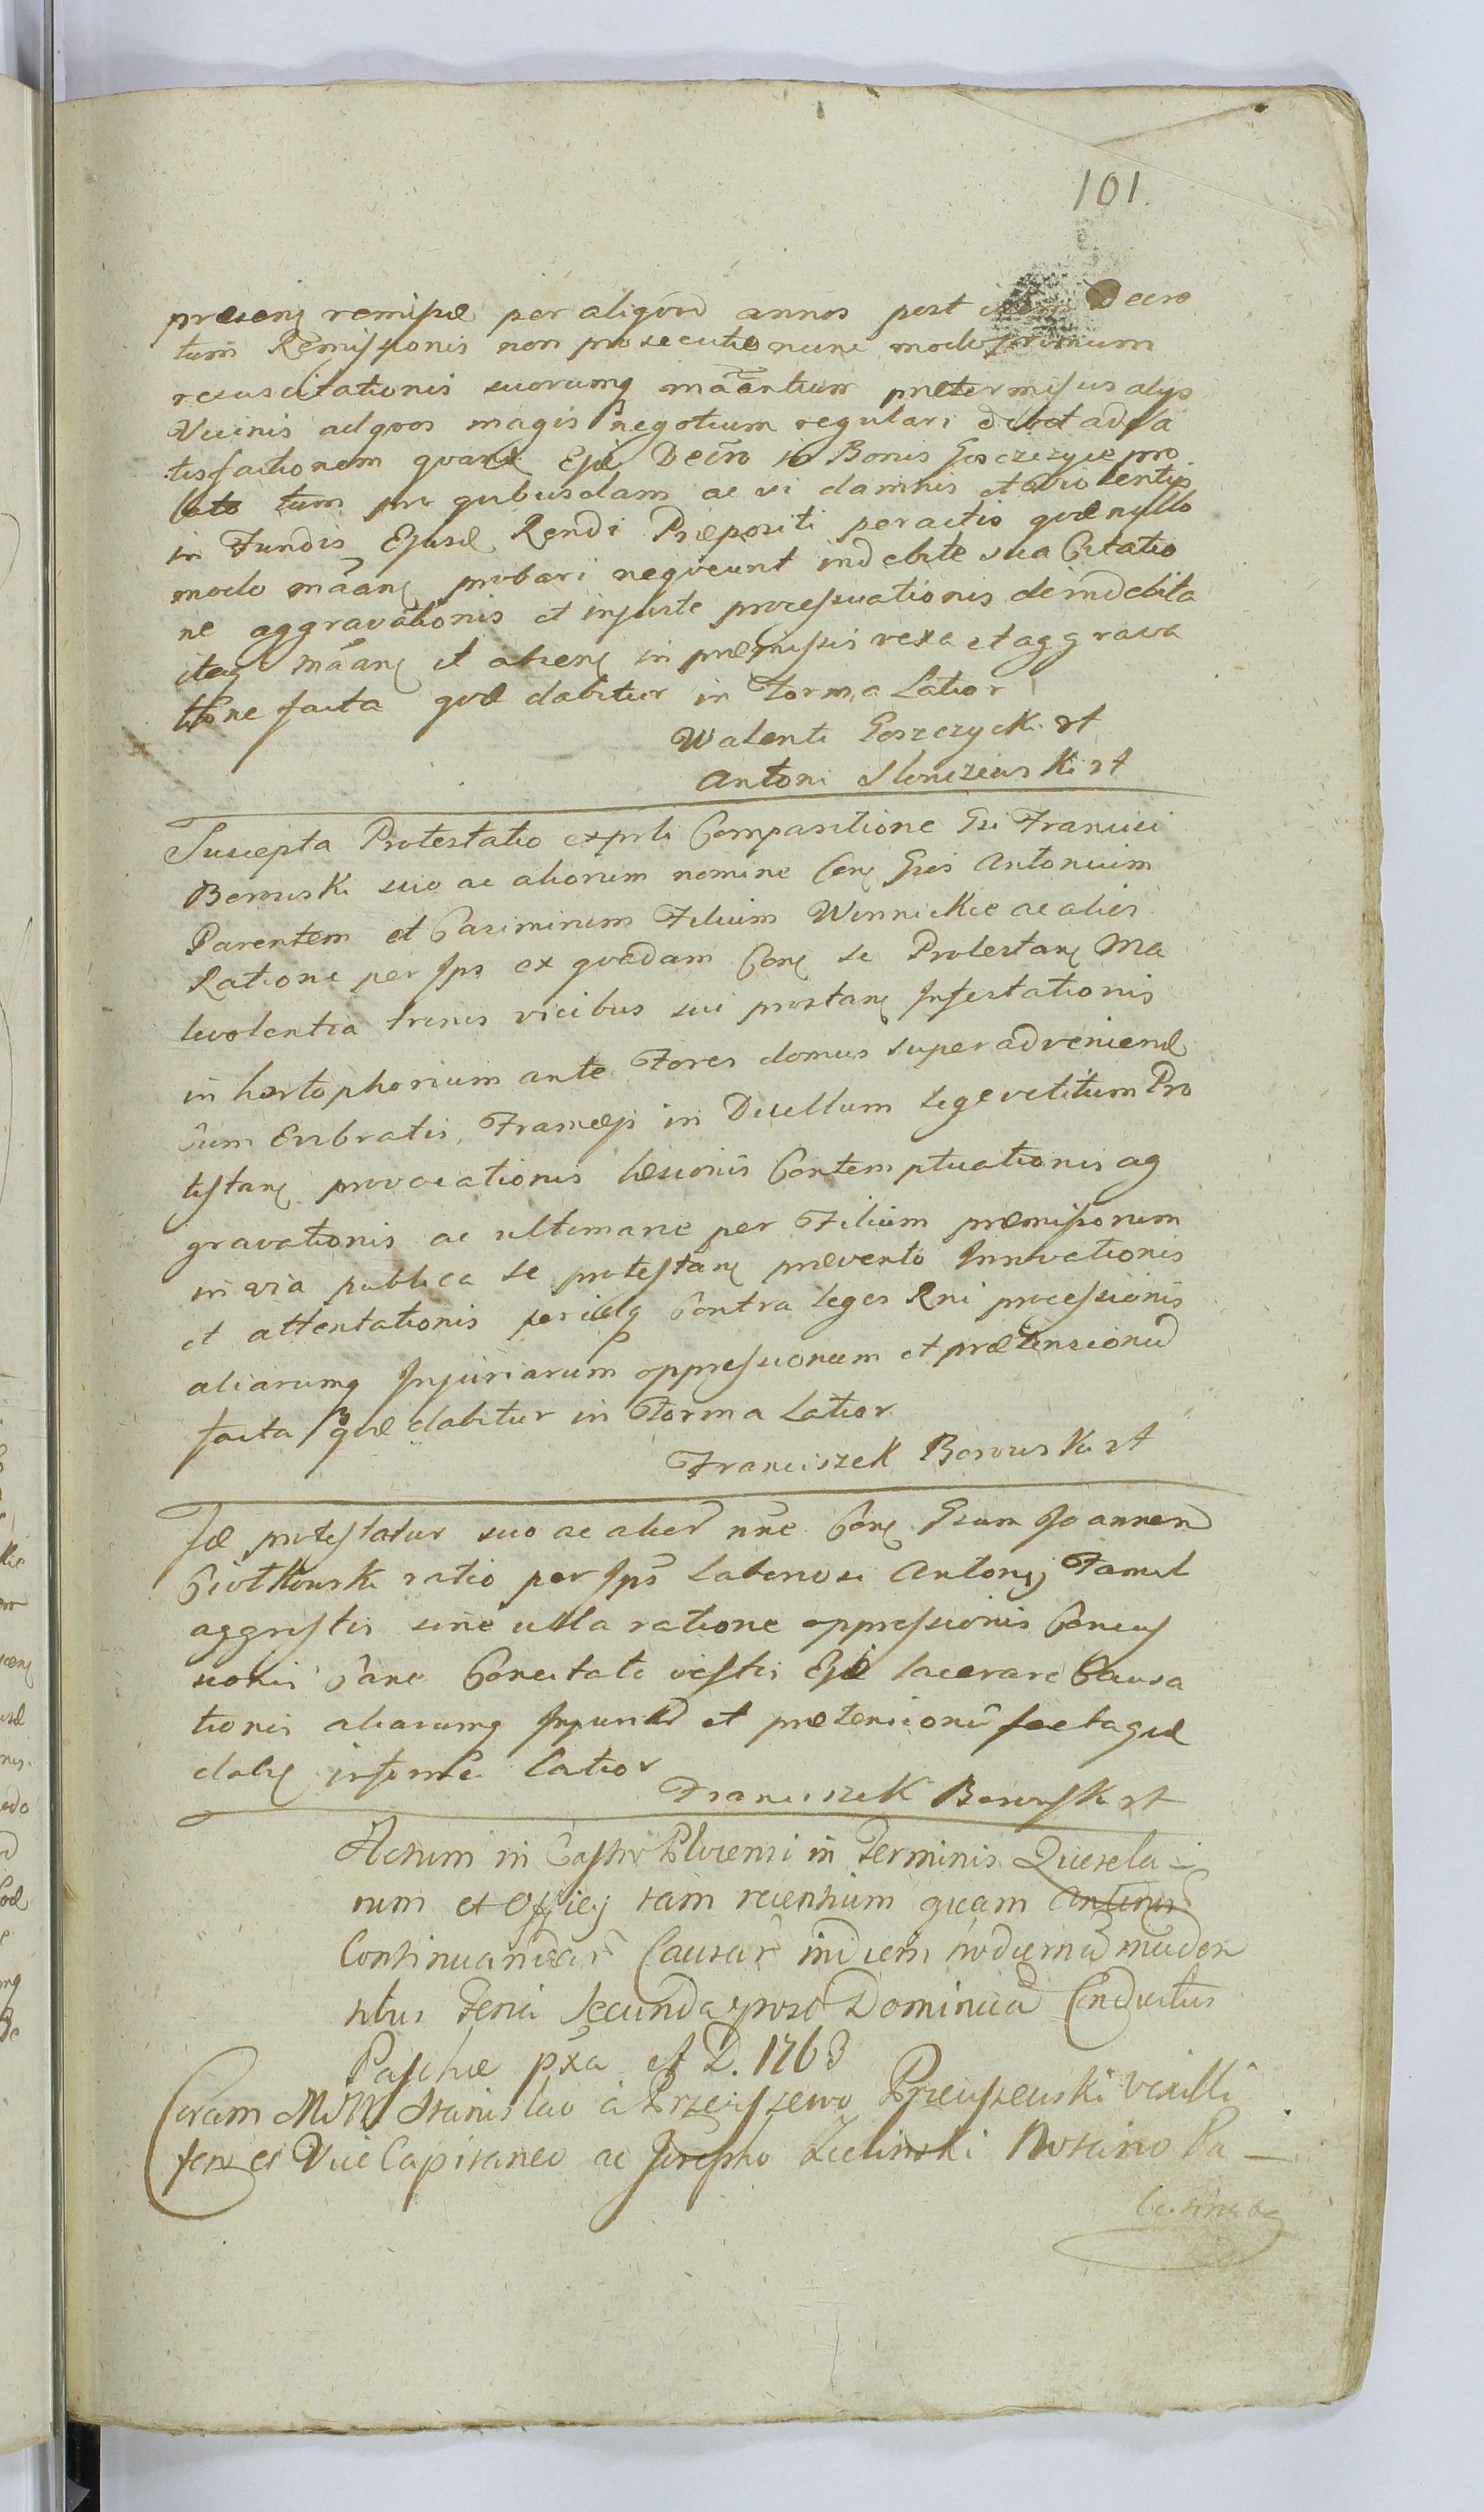 101.
præsenꝫ remissæ per aliqvod annos post Decre
tum Remissionis non prosecutio nunc modo primum
resuscitationis suorumq māantium prætermissus alijs
Vicinis ad qvos magis negotium regulari debet ad sa
tisfactionem Decro in Bonis Goszczyce pro
lato tum pro qvibusdam ac si damnis et violentijs
in Fundis Ejusd Rendi Præpositi peractis qvæ nullo
modo māanꝫ probari neqveunt indebite sua Citatio
ne aggravationis et injuste processuationis de indebita
itaq māanꝫ et alienꝫ in præmissis vexa et aggrava
tione facta qvæ dabitur in Forma Latior
Walenti Goszczycki
Antoni
Suscepta Protestatio exprti Comparitione Gsi Francisci
Borowski suo ac aliorum nomine Conꝫ Gsos Antonium
Parentem et Casimirum Filium Winnickie ac alios
Ratione per Ips ex qvadam Conꝫ se Protestanꝫ Ma
levolentia trinis vicibus sui prostanꝫ Infestationis
in hortophorium ante Fores domus superadveniend
cum Evibratis Frameis in Duellum lege vetitum Pro
testanꝫ provocationis læsionis Contemptuationis ag
gravationis ac ultimarie per Filium præmissorum
in via publica se protestanꝫ prævento Innovationis
et attentationis Contra leges Rni processionis
aliarumq Injuriarum oppressionum et prætensionū
facta qvæ dabitur in Forma Latior
Franciszek Borowski
Id protestatur suo ac alior nne Conꝫ Gsum Joannem
Ciotkowski ratio per Ips Laborioso Antonij Famul
aggressis sine ulla ratione oppressionis Concus
sionis Cane Concitato vestis Ejd lacerare Causa
tionis aliarumq Injuriar et prætensionū facta qvæ
dabꝫ in forma latior
Franciszek Borowski
Actum in Castro Plocensi in Terminis Querela
rum et Officij tam recentium quam
Continuandar Causar in diem hodiernā inciden
tibus Feria Secunda post Dominicā Conductus
Paschæ pxa A D. 1763
Coram MM Stanislao à Przeciszewo Przeciszewski Vexilli
fero et Vice Capitaneo ac Josepho Zielinski Notario Pa